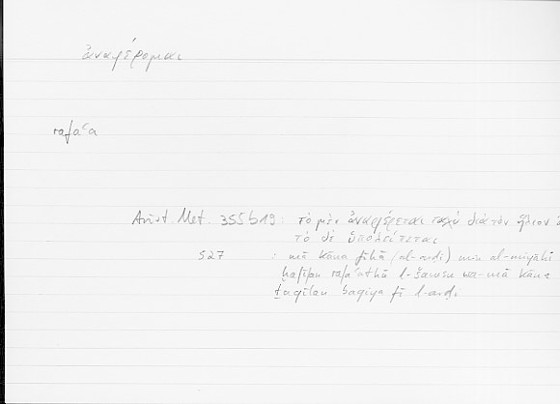 ἀναφέρομαι
rafaʿa
Arist. Met. 355b19 : τὸ μὲν ἀναφέρεται ταχὺ διὰ τὸν ἥλιον
τὸ δὲ ὑπολείπεται
527 : mā kāna fīhā (al-arḍi) min al-miyāhi
ḫafīfan rafaʿathā l-šamsu wa-mā kāna
ṯaqīlan baqiya fī l-arḍi